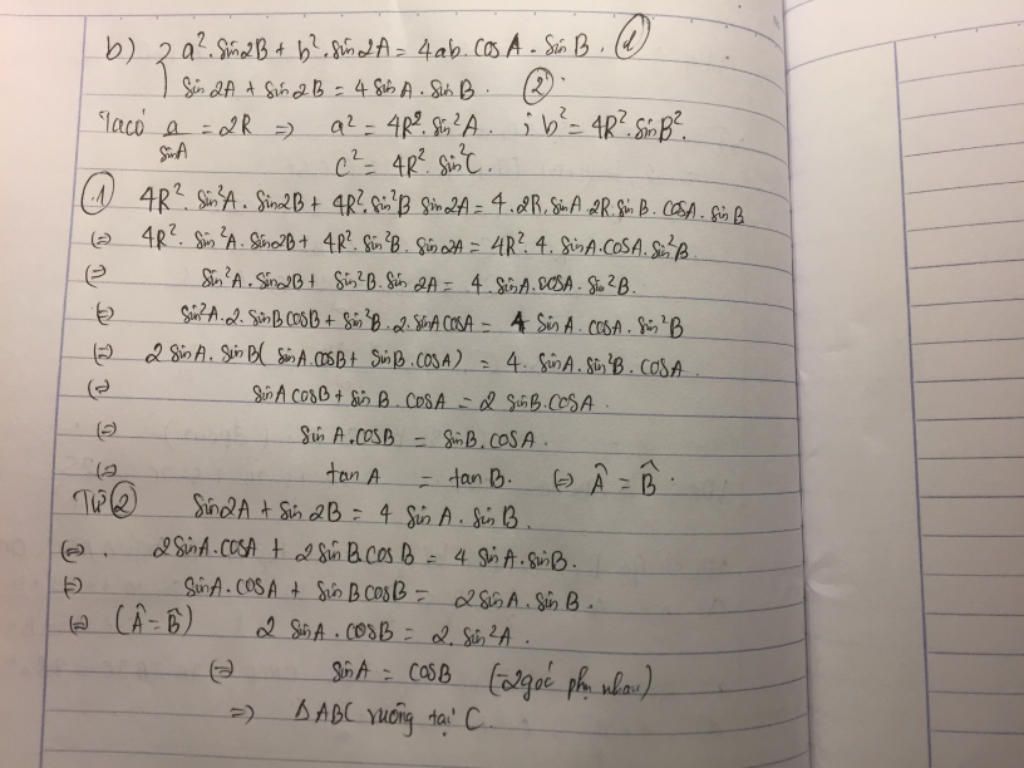 b) { a².sin2B + b².sin2A = 4ab.cosA.sinB. ①
sin2A + sin2B = 4sinA.sinB. ②.
Ta có a/sinA = 2R => a² = 4R².sin²A. ; b² = 4R².sinB².
c² = 4R².sin²C.
① 4R².sin²A.sin2B + 4R².sin²B sin2A = 4.2R.sinA.2R.sinB.cosA.sinB
(=) 4R².sin²A.sin2B + 4R².sin²B.sin2A = 4R².4.sinA.cosA.sin²B
(=) sin²A.sin2B + sin²B.sin2A = 4.sinA.cosA.sin²B.
(=) sin²A.2.sinBcosB + sin²B.2.sinAcosA = 4 sinA.cosA.sin²B
(=) 2sinA.sinB(sinA.cosB + sinB.cosA) = 4.sinA.sin²B.cosA.
(=) sinAcosB + sinB.cosA = 2sinB.cosA.
(=) sinA.cosB = sinB.cosA.
(=) tanA = tanB. (=) Â = B̂.
Từ ② sin2A + sin2B = 4 sinA.sinB.
(=). 2sinA.cosA + 2sinB.cosB = 4 sinA.sinB.
(=) sinA.cosA + sinBcosB = 2sinA.sinB.
(=) (Â = B̂) 2 sinA.cosB = 2.sin²A.
(=) sinA = cosB (-2 góc phụ nhau)
=> ΔABC vuông tại C.